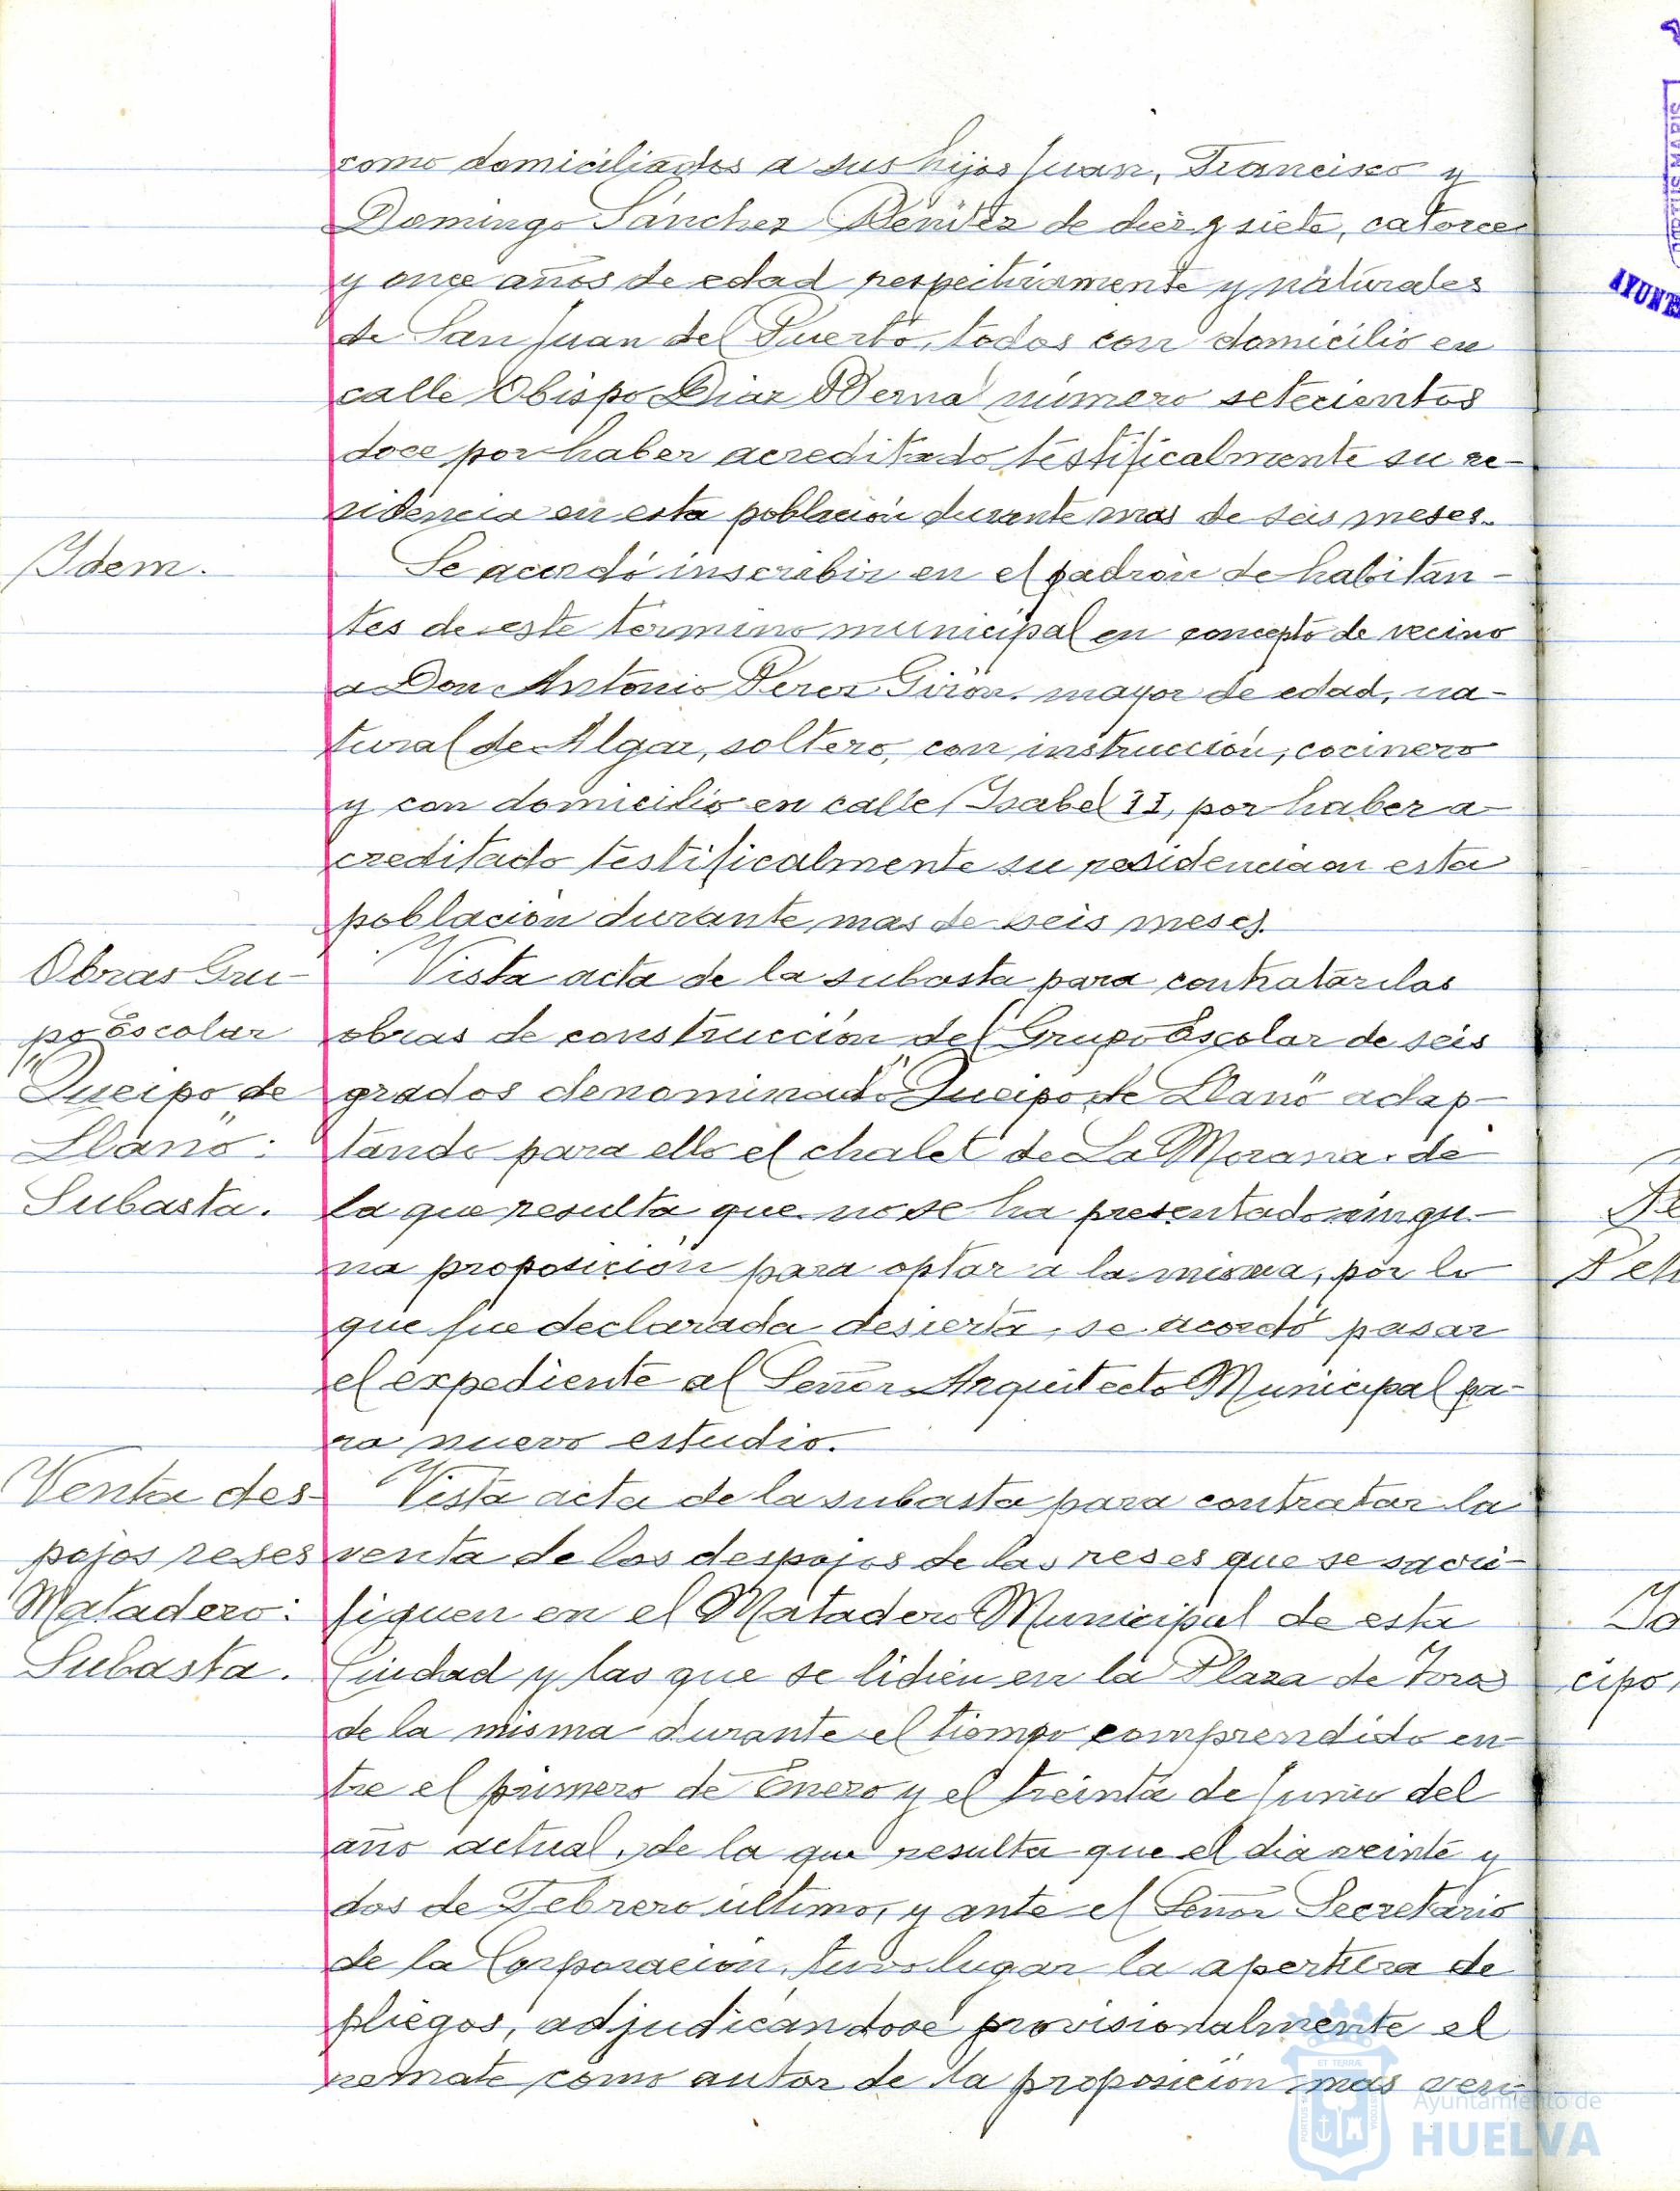 como domiciliados a sus hijos Juan, Francisco y
Domingo Sánchez Benitez de diez y siete, catorce
y once años de edad respectivamente y naturales
de San Juan del Puerto, todos con domicilio en
calle Obispo Diaz Bernal número setecientos
doce por haber acreditado testificalmente su re-
sidencia en esta población durante mas de seis meses.
Idem.
Se acordó inscribir en el padrón de habitan-
tes de este término municipal en concepto de vecino
a Don Antonio Perez Girón. mayor de edad, na-
tural de Algar, soltero, con instrucción, cocinero
y con domicilio en calle Isabel II, por haber a-
creditado testificalmente su residencia en esta
población durante mas de seis meses.
Obras Gru-
po Escolar
"Queipo de
Llano":
Subasta.
Vista acta de la subasta para contratar las
obras de construcción del Grupo Escolar de seis
grados denominado "Queipo de Llano" adap-
tando para ello el chalet de La Morana. de
la que resulta que no se ha presentado ningu-
na proposición para optar a la misma, por lo
que fue declarada desierta, se acordó pasar
el expediente al Señor Arquitecto Municipal pa-
ra nuevo estudio.
Venta des-
pojos reses
Matadero:
Subasta.
Vista acta de la subasta para contratar la
venta de los despojos de las reses que se sacri-
fiquen en el Matadero Municipal de esta
Ciudad y las que se lidien en la Plaza de Toros
de la misma durante el tiempo comprendido en-
tre el primero de Enero y el treinta de Junio del
año actual, de la que resulta que el dia veinte y
dos de Febrero último, y ante el Señor Secretario
de la Corporación, tuvo lugar la apertura de
pliegos, adjudicándose provisionalmente el
remate como autor de la proposición mas ven-
Ayuntamiento de
HUELVA
cipo,